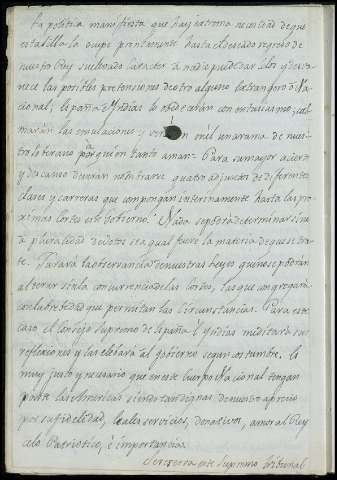 La politica manifiesta que hay extrema necesidad de que
esta silla la ocupe prontamente hasta el deseado regreso de
nuestro Rey su elevado caracter a nadie puede dar celos y desva-
nece las posibles pretensiones de otro alguno Extrangero ó Na-
cional; España é Yndias le obedecerán con entusiasmo; cal-
marán las emulaciones; y verán en él una rama de nues-
tro Soberano por quien tanto aman. Para su mayor acierto
y descanso deverán nombrarse quatro adjuntos de diferentes
clases y carreras que compongan interinamente hasta las pro-
ximas Cortes este Govierno. Nada se podrá determinar sino
a pluralidad de votos sea qual fuere la materia de que se tra-
te. Jurará la observancia de nuestras Leyes que no se podrán
alterar sin la concurrencia de las Cortes, las que congregará
con la brebedad que permitan las circunstancias. Para este
caso el Consejo Supremo de España é Yndias meditará sus
reflexiones y las elebará al govierno segun costumbre. Es
muy justo y necesario que en este Cuerpo Nacional tengan
parte las Americas siendo tan dignas de nuestro aprecio
por su fidelidad, leales servicios, donativos, amor al Rey
celo Patriotico, é importancia.
Se reserva este Supremo Tribunal